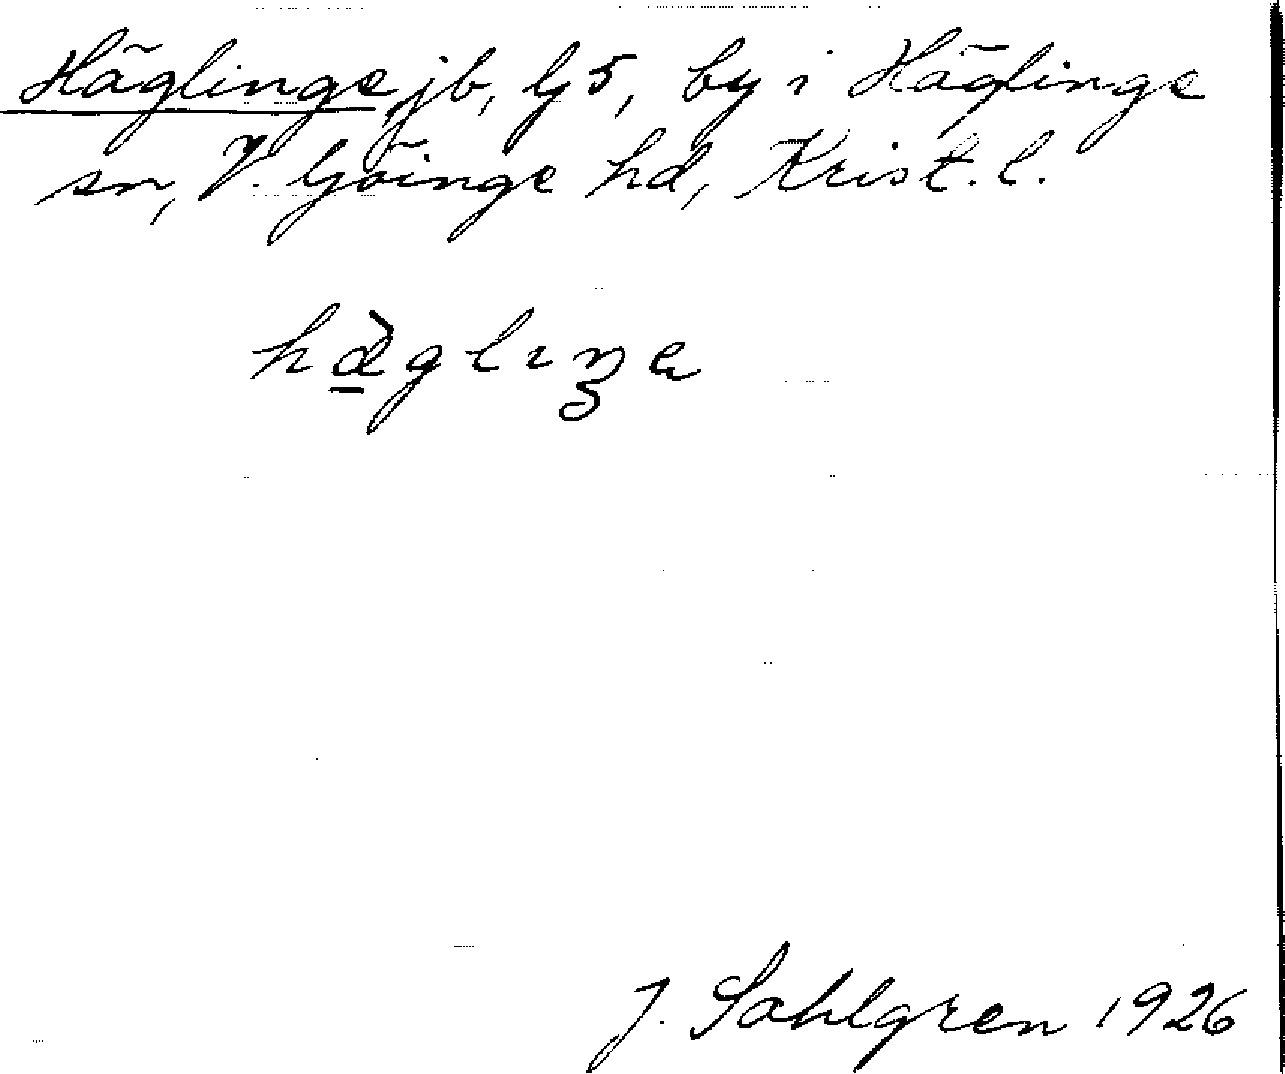 Häglinge jb, G5, by i Häglinge
sn, V. Göinge hd, Krist. l.
J. Sahlgren 1926